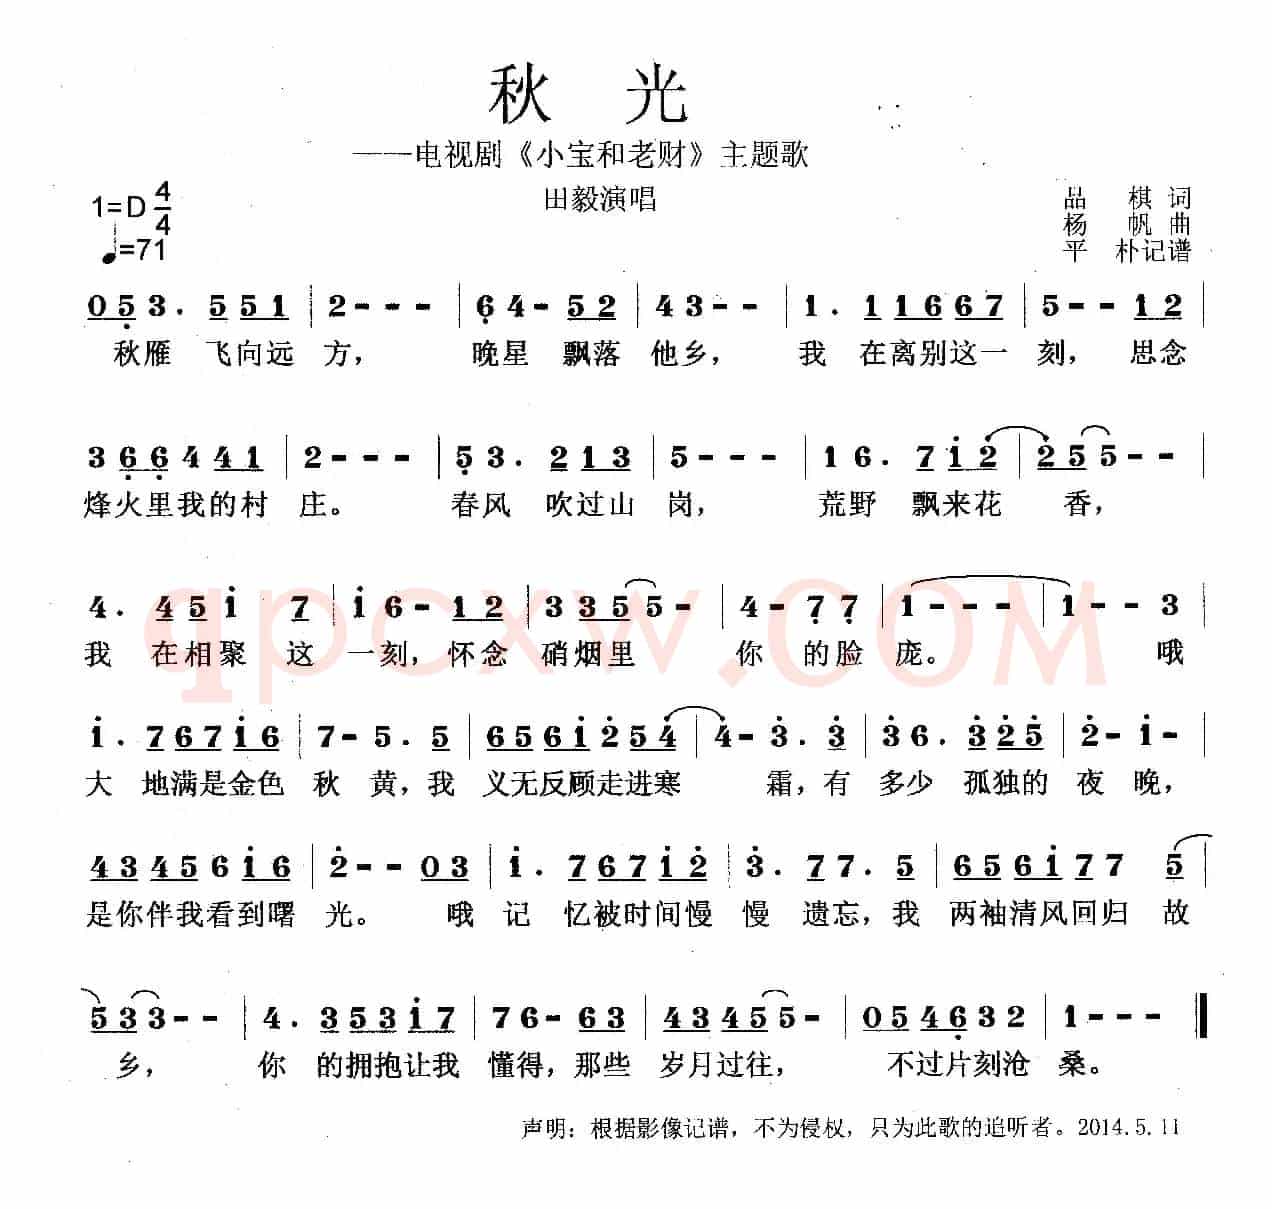 秋 光
——电视剧《小宝和老财》主题歌
田毅演唱
1=D 4/4
♩=71
品 棋 词
杨 帆 曲
平 朴记谱
0 5̣ 3 . 5 5 1 | 2 - - - | 6̣ 4 - 5 2 | 4 3 - - | 1 . 1 1 6 6 7 | 5 - - 1 2 |
秋雁 飞向远 方， 晚星 飘落 他乡， 我 在离别这一 刻， 思念
3 6̣ 6̣ 4 4 1 | 2 - - - | 5̣ 3 . 2 1 3 | 5 - - - | 1 6 . 7 i 2̇ | 2 5 5 - - |
烽火里我的村 庄。 春风 吹过山 岗， 荒野 飘来花 香，
4 . 4 5 i 7 | i 6 - 1 2 | 3 3 5 5 - | 4 - 7̣ 7̣ | 1 - - - | 1 - - 3 |
我 在相聚 这 一刻，怀念 硝烟里 你 的脸 庞。 哦
i . 7 6 7 i 6 | 7 - 5 . 5 | 6 5 6 i 2̇ 5 4̇ | 4̇ - 3̇ . 3̇ | 3̇ 6 . 3̇ 2̇ 5̇ | 2̇ - i - |
大 地满是金色 秋 黄，我 义无反顾走进寒 霜，有 多少 孤独的 夜 晚，
4 3 4 5 6 i 6 | 2̇ - - 0 3 | i . 7 6 7 i 2̇ | 3̇ . 7 7 . 5 | 6 5 6 i 7 7 5 |
是你伴我看到曙 光。 哦 记 忆被时间慢 慢 遗忘，我 两袖清风回归 故
5 3 3 - - | 4 . 3 5 3 i 7 | 7 6 - 6 3 | 4 3 4 5 5 - | 0 5 4 6̣ 3 2 | 1 - - - ‖
乡， 你 的拥抱让我 懂得，那些 岁月过往， 不过片刻沧 桑。
声明：根据影像记谱，不为侵权，只为此歌的追听者。2014.5.11
qpcxw.COM